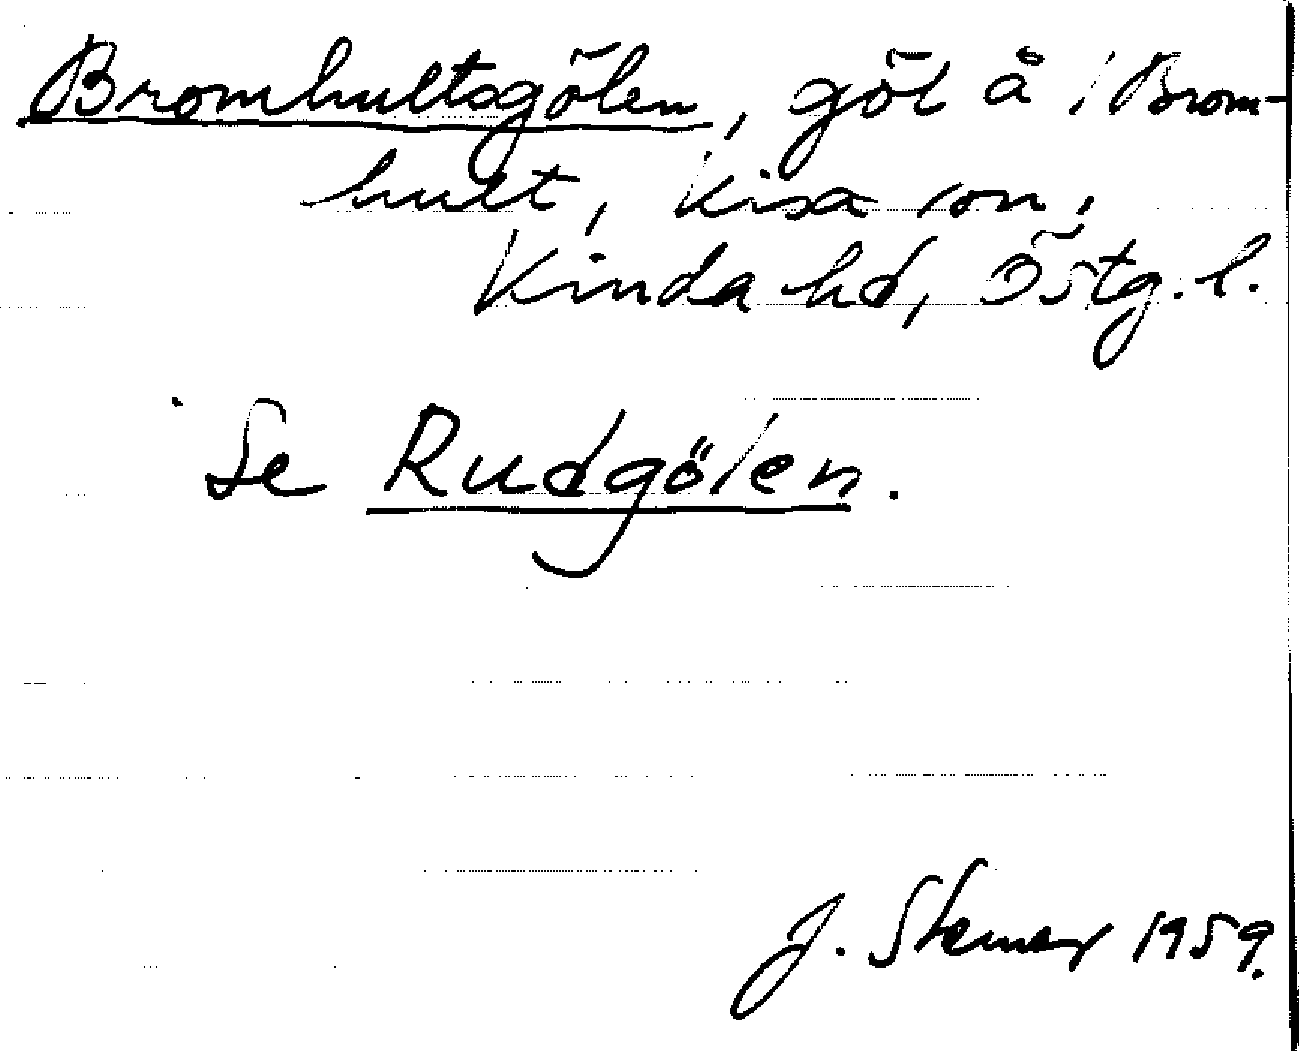 Bromhultsgölen, göl å / Brom-
hult, Kisa sn,
Kinda hd, Östg. l.
Se Rudgölen.
J. 1959.